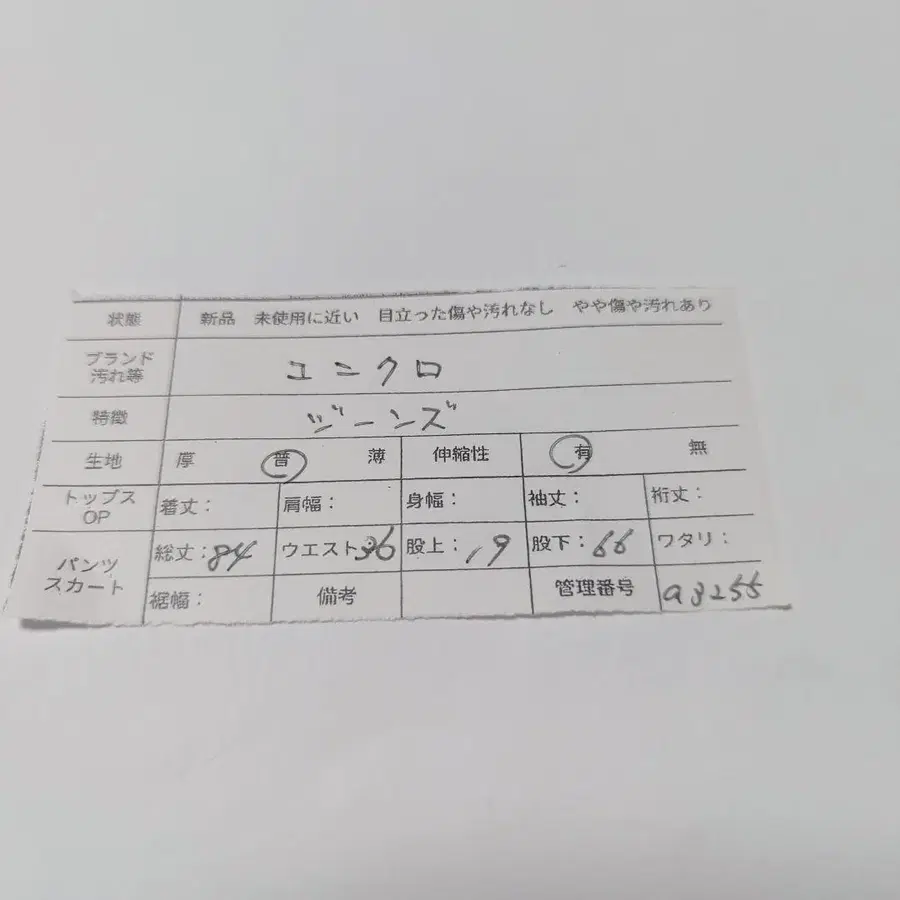 状態 新品 未使用に近い 目立った傷や汚れなし やや傷や汚れあり
ブランド
汚れ等 ユニクロ
特徴 ジーンズ
生地 厚 普 薄 伸縮性 有 無
トップス
OP 着丈: 肩幅: 身幅: 袖丈: 裄丈:
パンツ
スカート 総丈:84 ウエスト36 股上:19 股下:66 ワタリ:
裾幅: 備考 管理番号 a3255